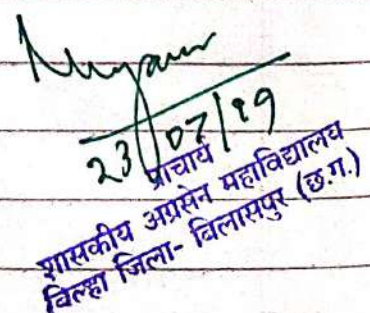 23/07/19
प्राचार्य
शासकीय अग्रसेन महाविद्यालय
बिल्हा जिला- बिलासपुर (छ.ग.)